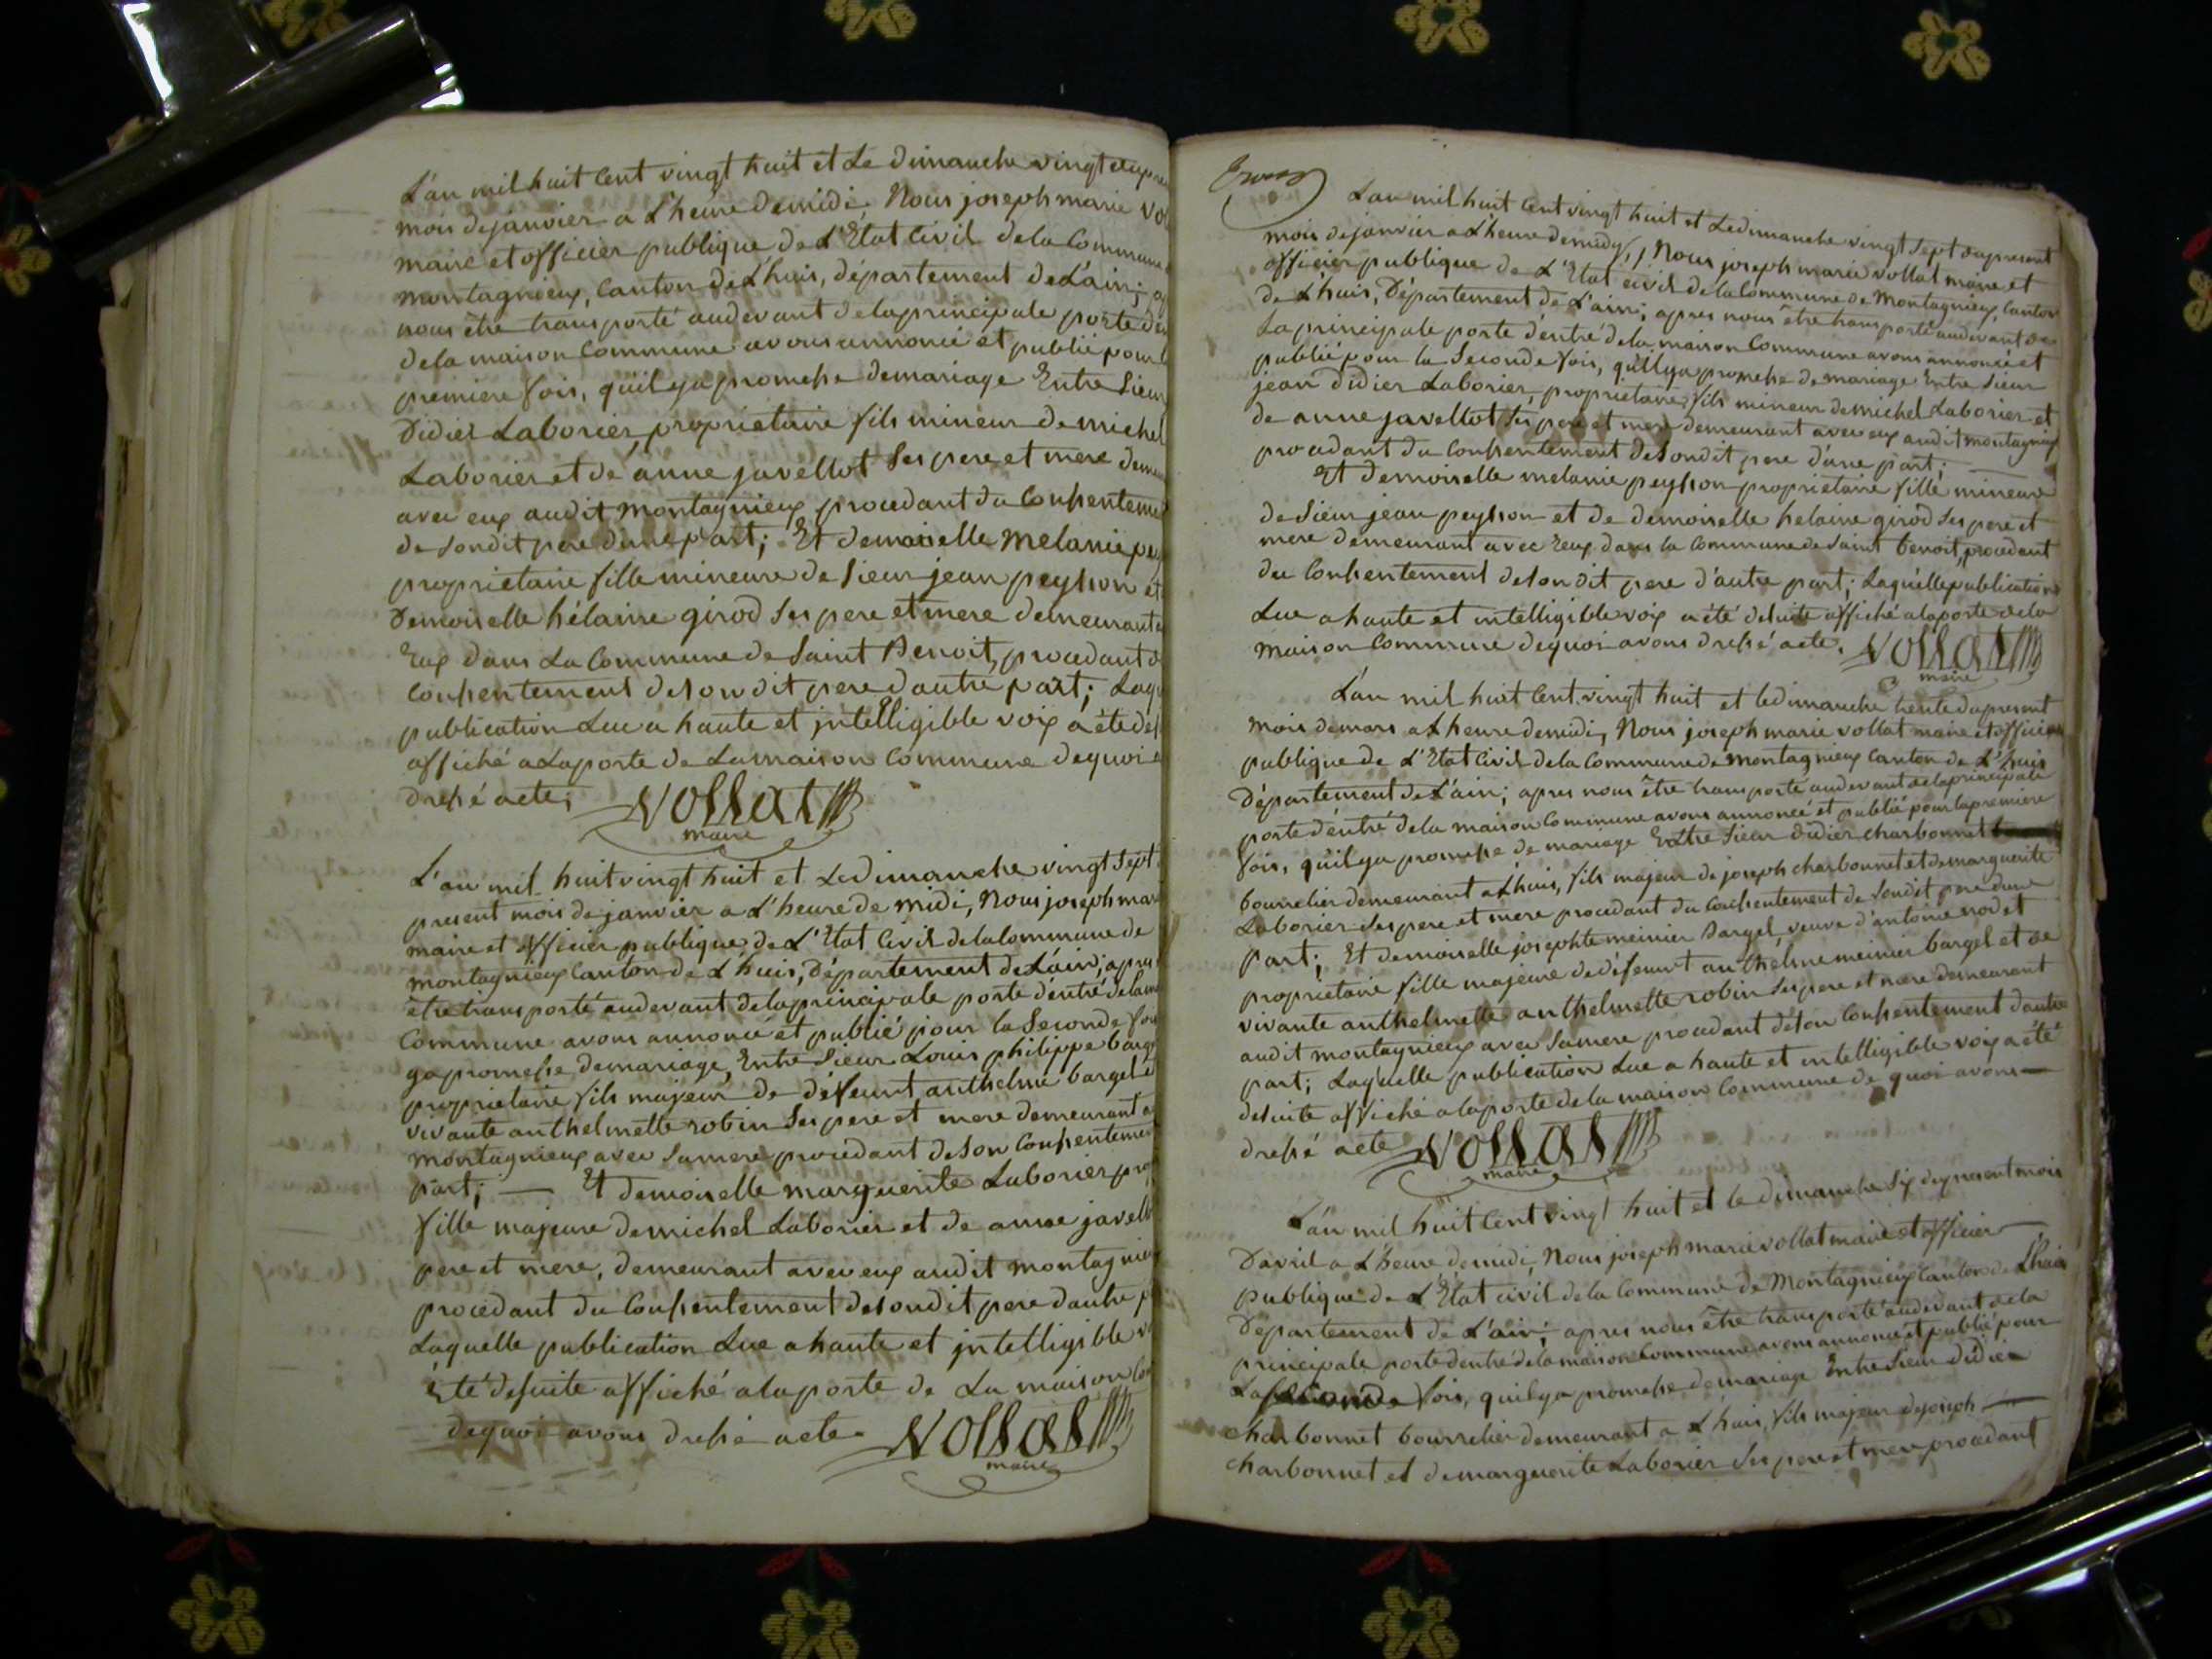 L'an mil huit cent vingt huit et Le dimanche vingt
mois de janvier a L'heure de midi, Nous joseph marie vol
maire et officier publique de L'Etat Civil de la Commune
montagnieux, Canton de L'huis, département de L'ain; a
nous être transporté audevant de la principale porte d'en
de la maison Commune avons annoncé et publié pour l
premiere fois, qu'il y a promesse de mariage Entre Sieur
Didier Laborier, proprietaire fils mineur de michel
Laborier et de anne javellot Ses pere et mere demeu
avec eux audit montagnieux procedant du Consenteme
de Sondit pere d'une part; Et demoiselle Melanie pey
proprietaire fille mineure de Sieur jean peysson et
Demoiselle hélaine girod Ses pere et mere demeurant a
Eux dans La Commune de Saint Benoit, procedant d
Consentement de Son dit pere d'autre part; Laqu
publication Lue a haute et jntelligible voix a été de s
affiché a La porte de La maison Commune de quoi a
dressé acte; Vollat
maire
L'an mil huit vingt huit et Le dimanche vingt Sept
present mois de janvier a L'heure de midi, Nous joseph mar
maire et officier publique de L'Etat Civil de la Commune de
montagnieux Canton de L'huis, Département de L'ain; apres
être transporté audevant de la principale porte d'entré de la m
Commune avons annoncé et publié pour la Seconde foi
y a promesse de mariage, Entre Sieur Louis philippe barge
proprietaire fils majeur de défeunt anthelme bargel e
vivante anthelmette robin Ses pere et mere demeurant a
montagnieux avec Sa mere procedant de Son Consentemen
part; — Et demoiselle marguerite Laborier pro
fille majeure de michel Laborier et de anne javell
pere et mere, demeurant avec eux audit montagnieu
procedant du Consentement de Sondit pere d'autre p
Laquelle publication Lue a haute et jntelligible v
Eté de suite affiché a la porte de La maison Co
de quoi avons dressé acte. Vollat
maire
L'an mil huit Cent vingt huit et Le dimanche vingt Sept du present
mois de janvier a L'heure de midy, Nous joseph marie vollat maire et
officier publique de L'Etat civil de la Commune de Montagnieux, Canton
de L'huis, Département de L'ain; apres nous être transporté audevant de
La principale porte d'entré de la maison Commune avons annoncé et
publié pour la Seconde fois, qu'il y a promesse de mariage Entre Sieur
jean didier Laborier, proprietaire fils mineur de michel Laborier et
de anne javellot Ses pere et mere demeurant avec eux audit montagnieux
procedant du Consentement de Sondit pere d'une part;
Et demoiselle melanie peysson proprietaire fille mineure
de Sieur jean peysson et de demoiselle helaine girod Ses pere et
mere demeurant avec Eux dans la Commune de Saint benoit, procedant
du Consentement de Son dit pere d'autre part; Laquelle publication
Lue a haute et intelligible voix a été de suite affiché a la porte de la
maison Commune de quoi avons dressé acte. Vollat
maire
L'an mil huit Cent vingt huit et le dimanche trente du present
mois de mars a L'heure de midi, Nous joseph marie vollat maire et officier
publique de L'Etat Civil de la Commune de Montagnieux Canton de L'huis
Département de L'ain; apres nous être transporté audevant de la principale
porte d'entré de la maison Commune avons annoncé et publié pour la premiere
fois, qu'il y a promesse de mariage Entre Sieur didier charbonnet
bourrelier demeurant a Lhuis, fils majeur de joseph charbonnet et de marguerite
Laborier Ses pere et mere procedant du Consentement de Sondit pere d'une
part; Et demoiselle josephte meinier bargel, veuve d'antoine nodet
proprietaire fille majeure de défeunt anthelme meinier bargel et de
vivante anthelmette anthelmette robin Ses pere et mere demeurant
audit montagnieux avec Sa mere procedant de Son Consentement d'autre
part; Laquelle publication Lue a haute et intelligible voix a été
de suite affiché a la porte de la maison Commune de quoi avons —
dressé acte Vollat
maire
L'an mil huit Cent vingt huit et le dimanche Six du present mois
D'avril a L'heure de midi, Nous joseph marie vollat maire et officier —
publique de L'Etat civil de la Commune de Montagnieux Canton de Lhuis
Département de L'ain; apres nous être transporté audevant de la
principale porte d'entré de la maison Commune avons annoncé et publié pour
La Seconde fois, qu'il y a promesse de mariage Entre Sieur didier
charbonnet bourrelier demeurant a Lhuis, fils majeur de joseph —
charbonnet et de marguerite Laborier Ses pere et mere procedant